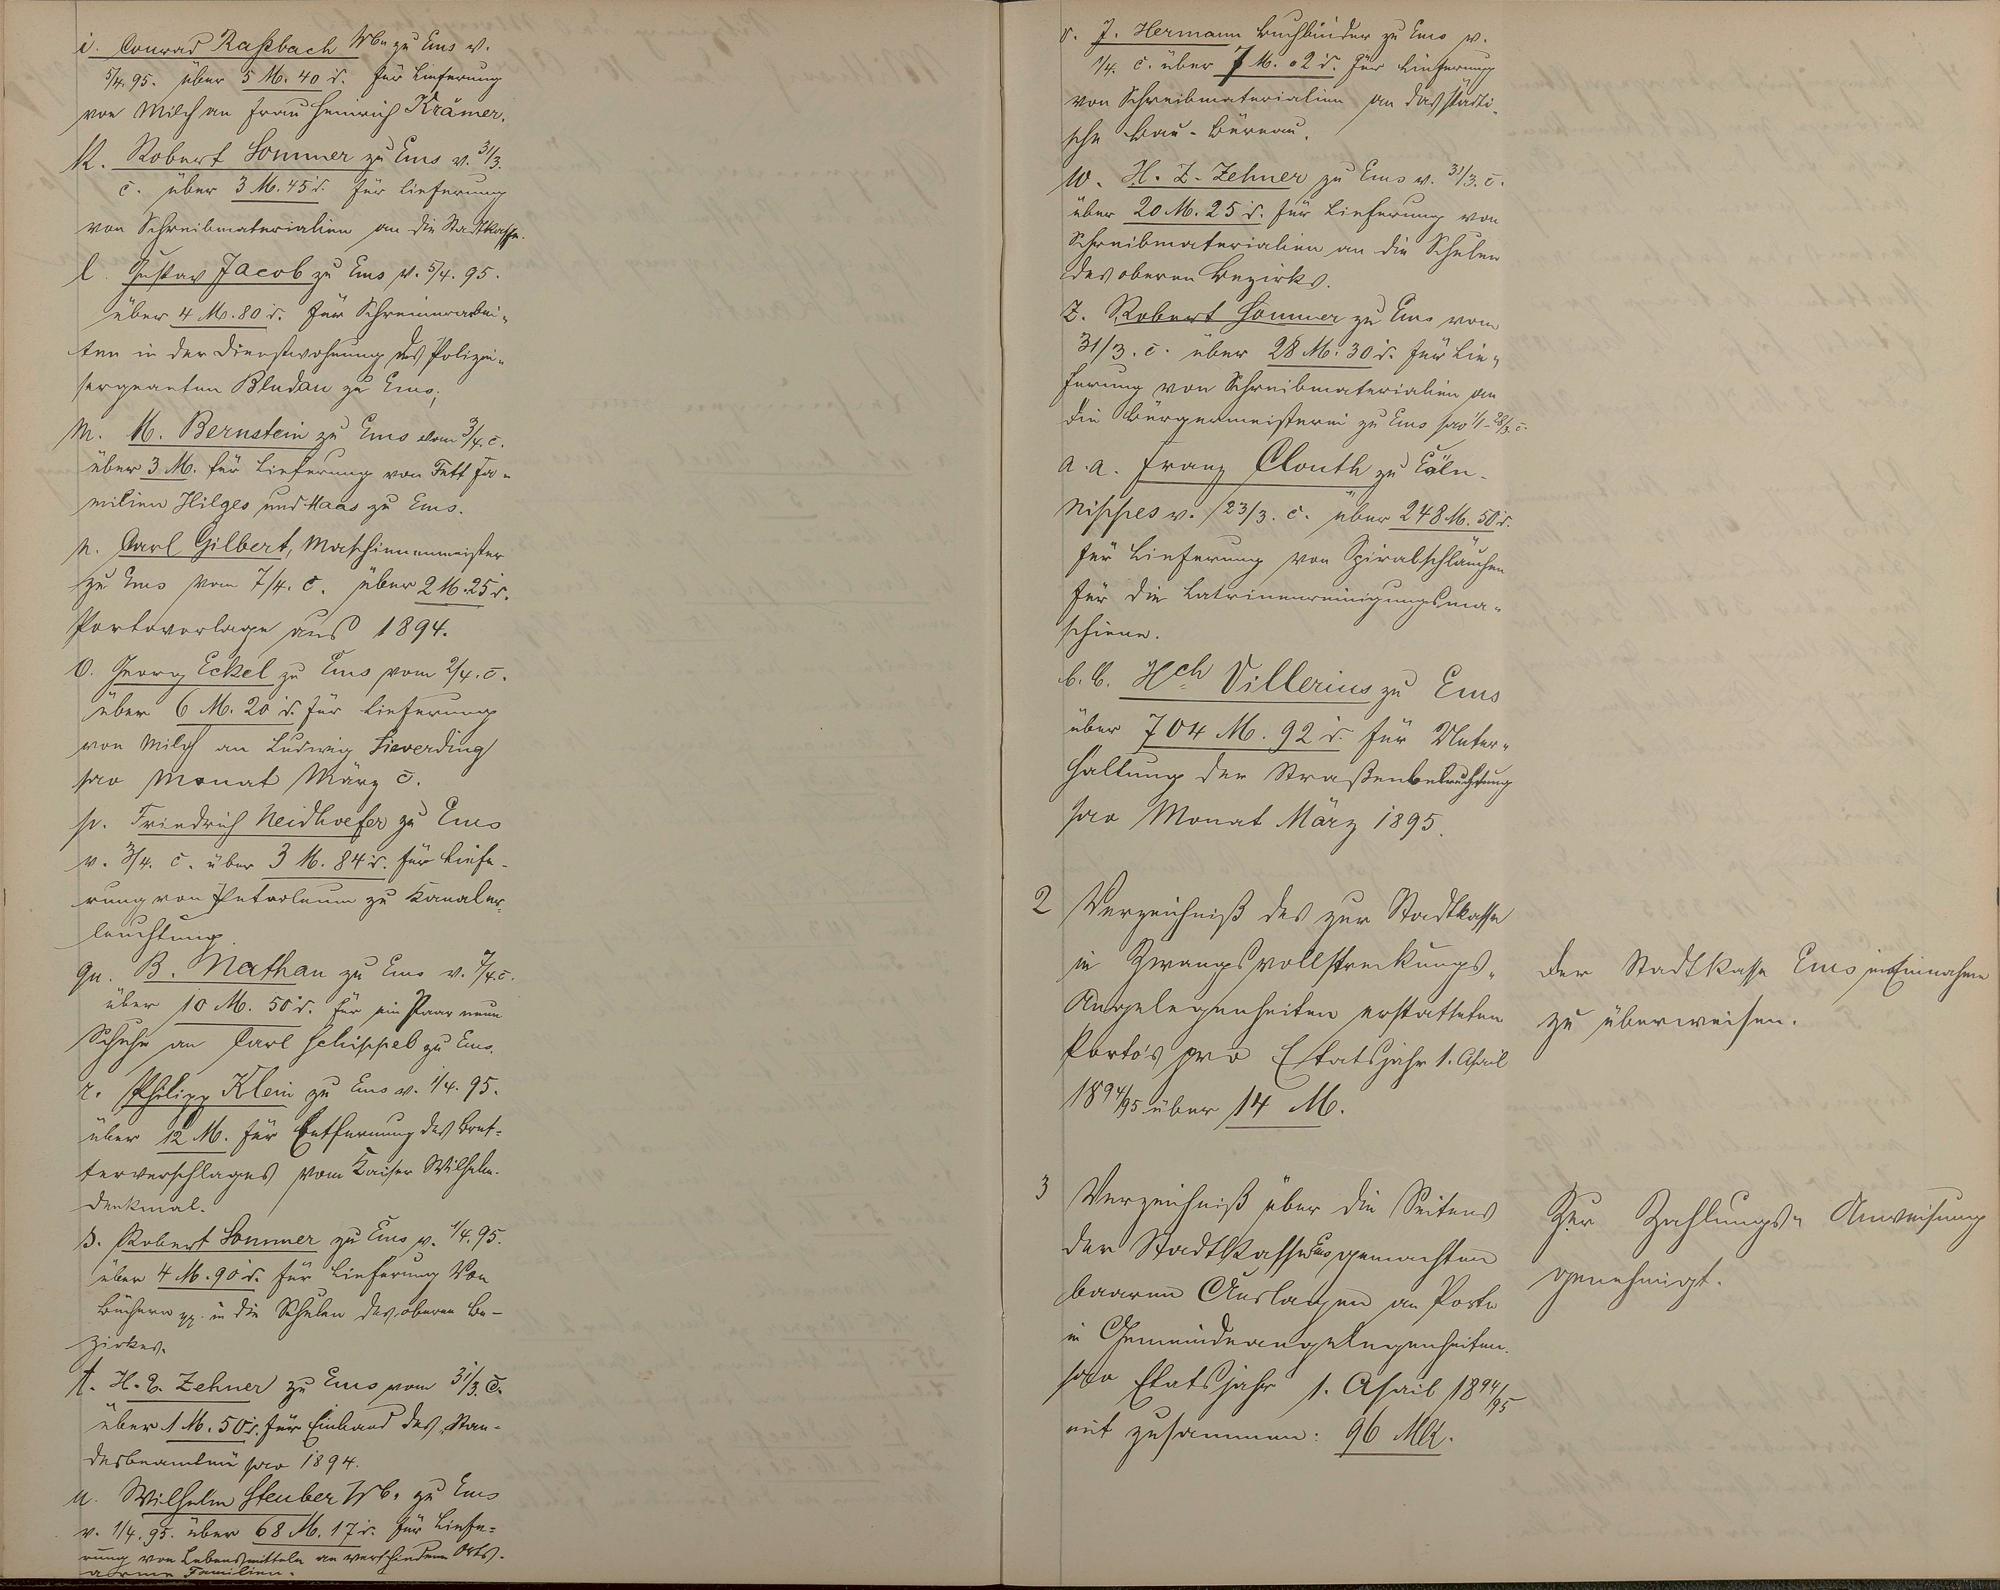 i. Conrad Raßbach Wwe zu Ems v.
5/4. 95. über 5 M. 40 d. für Lieferung
von Milch an Frau Heinrich Krämer.
k. Robert Sommer zu Ems v. 31/3.
c. über 3 M. 45 d. für Lieferung
von Schreibmaterialien an die Stadtkasse.
l. Gustav Jacob zu Ems v. 5/4. 95.
über 4 M. 80 d. für Schreinerarbei-
ten in der Dienstwohnung des Polizei-
sergeanten Bludau zu Ems;
m. M. Bernstein zu Ems vom 3/4. c.
über 3 M. für Lieferung von Fett Fa-
milien Hilges und Maas zu Ems.
n. Carl Gilbert, Maschinenmeister
zu Ems vom 7/4. c. über 2 M. 25 d.
Portovorlage aus 1894.
o. Georg Eckel zu Ems vom 2/4. c.
über 6 M. 20 d. für Lieferung
von Milch an Ludwig Sieverding
pro Monat März c.
p. Friedrich Neidhoefer zu Ems
v. 3/4. c. über 3 M. 84 d. für Liefe-
rung von Petroleum zu Kanaler-
leuchtung.
qu. B. Nathan zu Ems v. 7/4. c.
über 10 M. 50 d. für ein Paar neue
Schuhe an Carl Schippel zu Ems.
r. Philipp Klein zu Ems v. 1/4. 95.
über 12 M. für Entfernung des Bret-
terverschlages vom Kaiser Wilhelm-
denkmal.
s. Robert Sommer zu Ems v. 1/4. 95.
über 4 M. 90 d. für Lieferung von
Büchern pp. in die Schulen des oberen Be-
zirkes.
t. H. Z. Zehner zu Ems vom 31/3. c.
über 1 M. 50 d. für Einband des Stan-
desbeamten pro 1894.
u. Wilhelm Steuber Wb. zu Ems
v. 1/4. 95. über 68 M. 17 d. für Liefe-
rung von Lebensmitteln an verschiedene Orts-
arme Familien.
v. J. Hermann Buchbinder zu Ems v.
1/4. c. über 7 M. 02 d. für Lieferung
von Schreibmaterialien an das städti-
sche Bau-Büreau.
w. H. Z. Zehner zu Ems v. 31/3. c.
über 20 M. 25 d. für Lieferung von
Schreibmaterialien an die Schulen
des oberen Bezirks.
z. Robert Sommer zu Ems vom
31/3. c. über 28 M. 30 d. für Lie-
ferung von Schreibmaterialien an
die Bürgermeisterei zu Ems pro 1/1-28/3. c.
a.a. Franz Clouth zu Cöln-
Nippes v. 23/3. c. über 248 M. 50 d.
für Lieferung von Spiralschläuchen
für die Latrinenreinigungsma-
schiene.
b.b. Hch Villerius zu Ems
über 704 M. 92 d. für Unter-
haltung der Straßenbeleuchtung
pro Monat März 1895.
2 Verzeichniß des zur Stadtkasse
in Zwangsvollstreckungs-
Angelegenheiten erstatteten
Porto's pro Etatsjahr 1. April
1894/95 über 14 M.
Der Stadtkasse Ems in Einnahme
zu überweisen.
3 Verzeichniß über die Seitens
der Stadtkasse Ems gemachten
baaren Auslagen an Porto
in Gemeindeangelegenheiten
pro Etatsjahr 1. April 1894/95
mit zusammen: 96 Mk.
Zur Zahlungs-Anweisung
genehmigt.